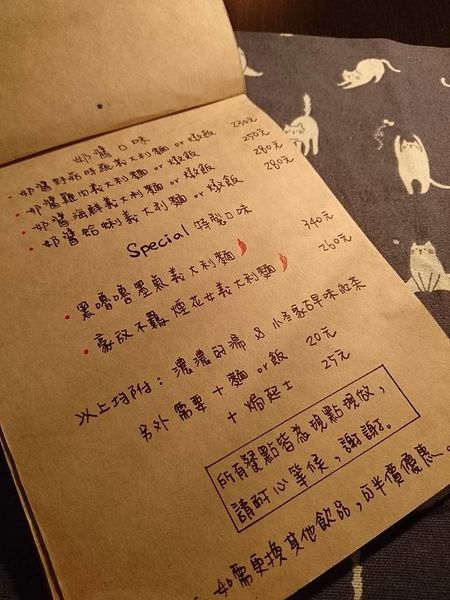 奶醬口味
• 奶醬野菇時蔬義大利麵 or 燉飯 230元
• 奶醬雞肉義大利麵 or 燉飯 250元
• 奶醬海鮮義大利麵 or 燉飯 280元
• 奶醬蛤蜊義大利麵 or 燉飯 280元
Special 特製口味
• 黑嚕嚕墨魚義大利麵 340元
• 豪放不羈煙花女義大利麵 260元
以上均附：濃濃的湯 & 小冬家古早味泡菜
另外需要 + 麵 or 飯 20元
+ 焗起士 25元
所有餐點皆為現點現做，
請耐心等候，謝謝。
如需更換其他飲品，為半價優惠。